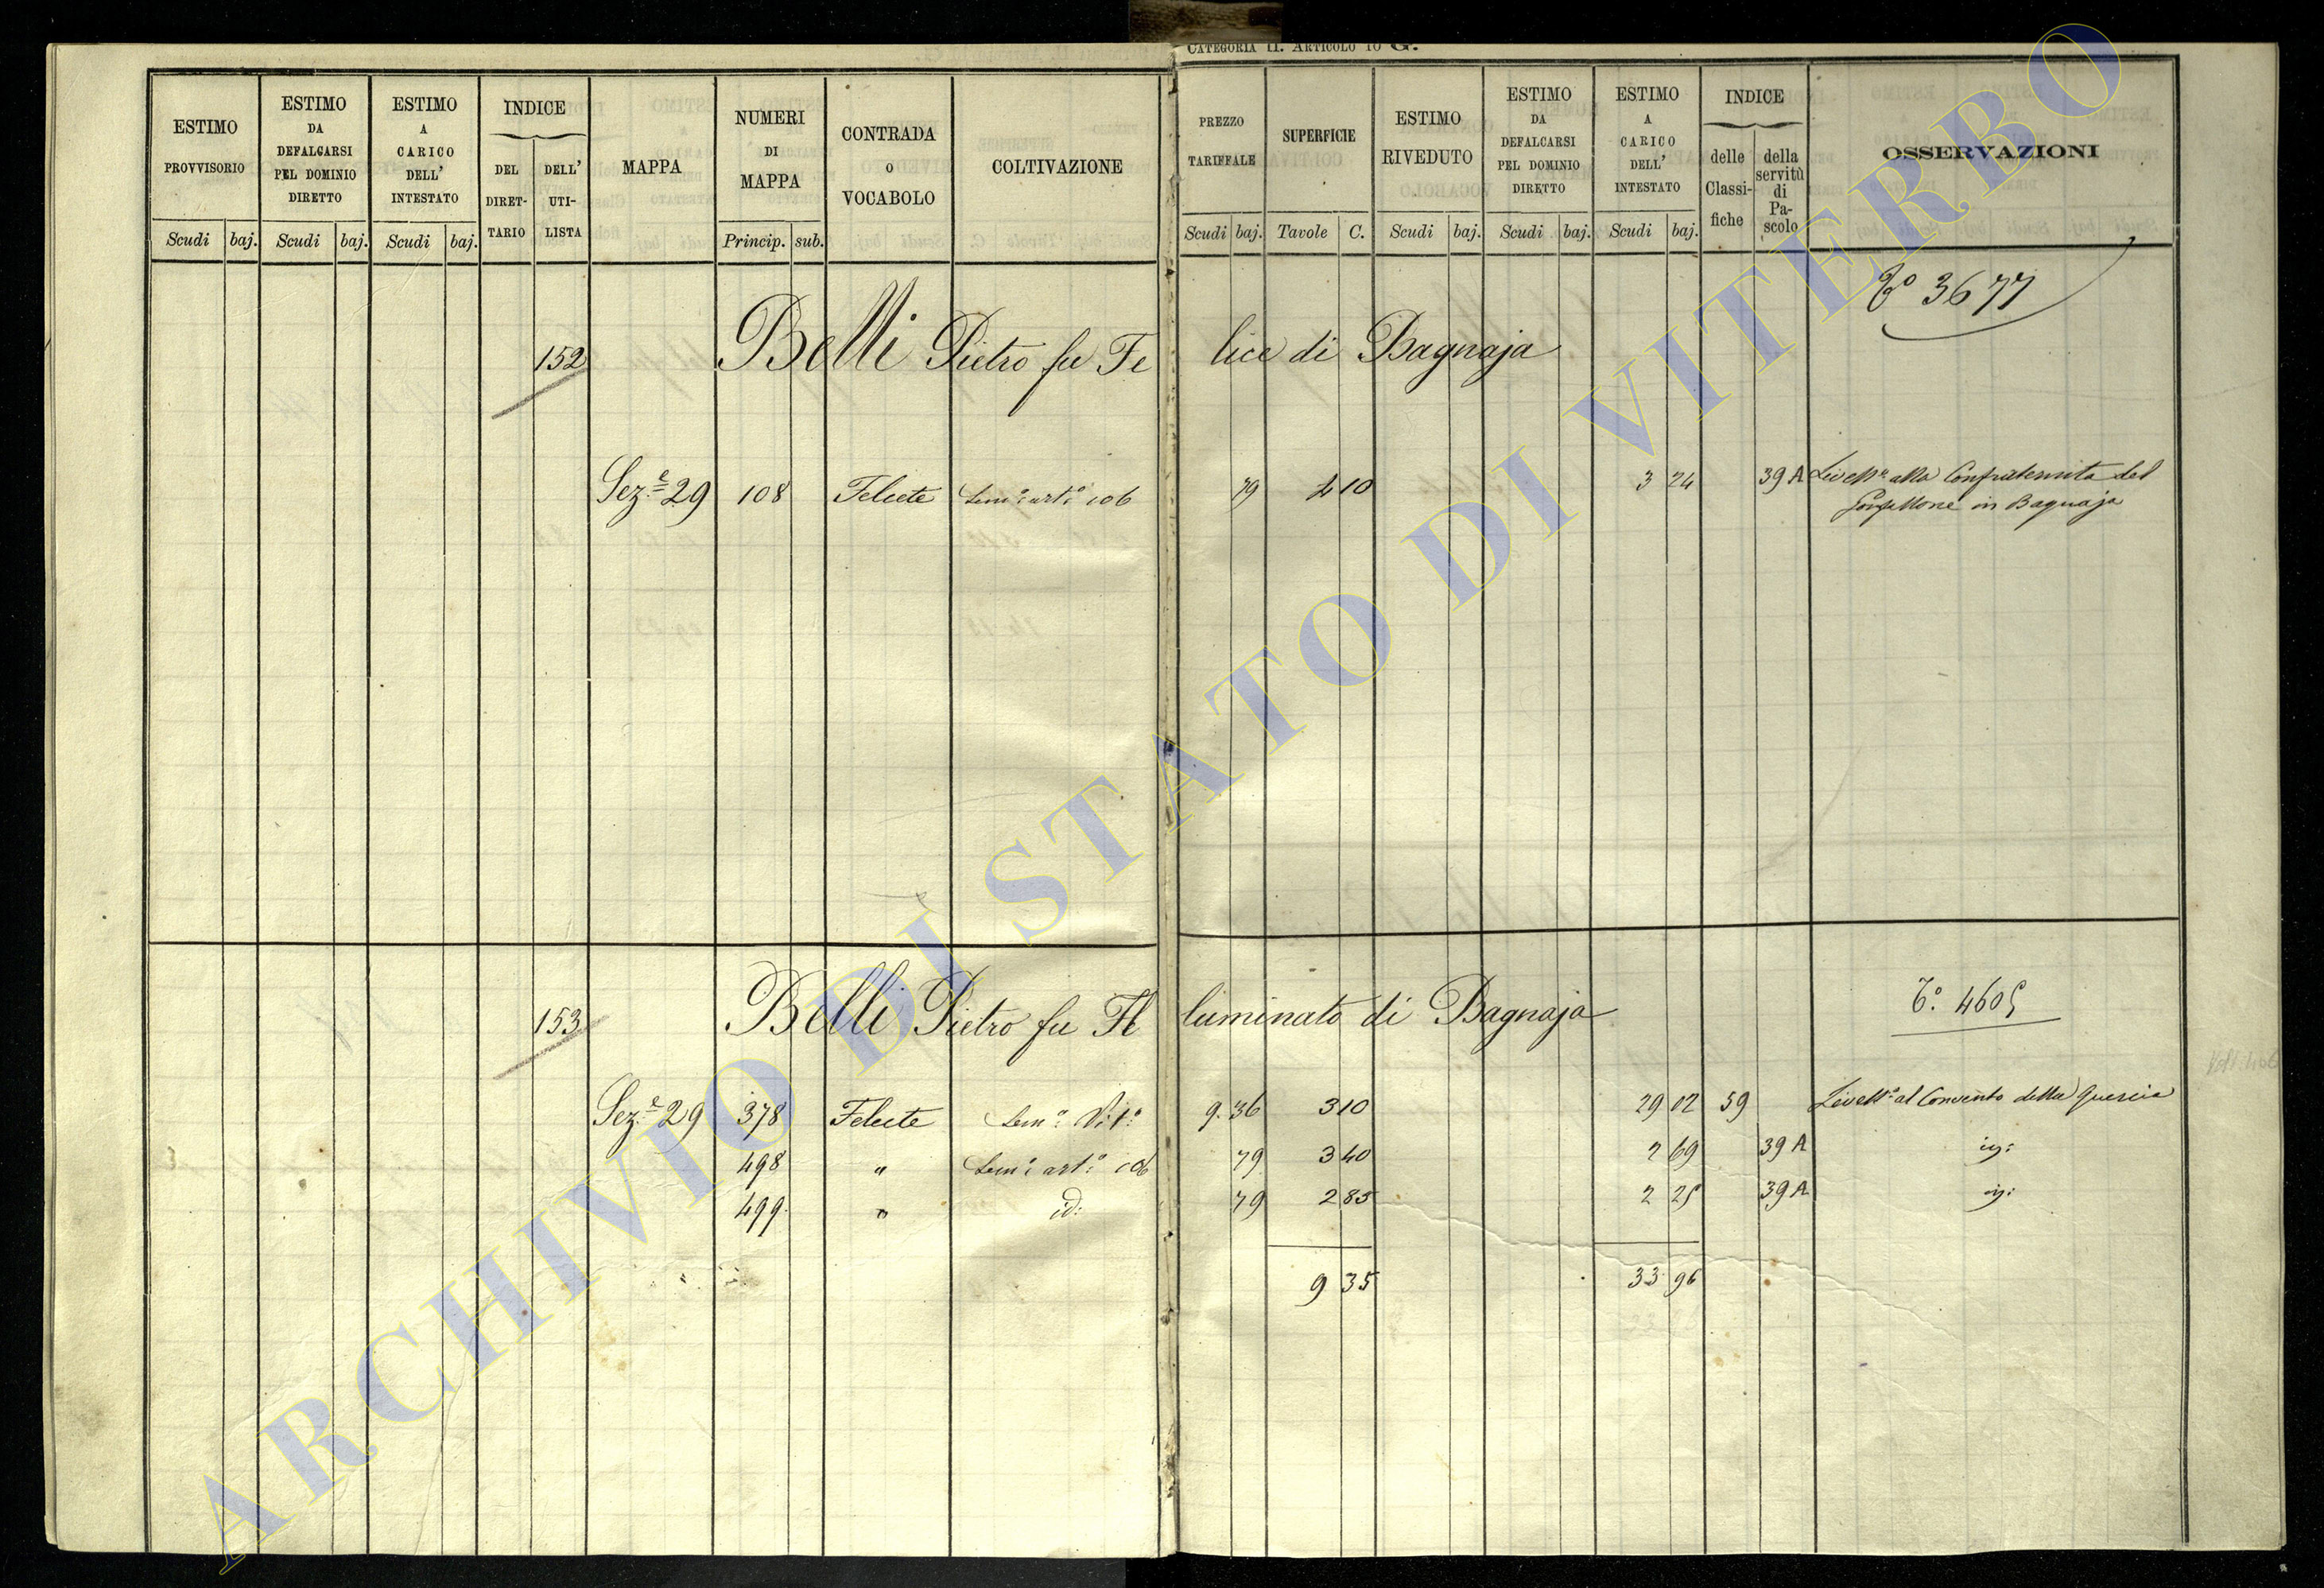 CATEGORIA II. ARTICOLO 10 G.
ESTIMO PROVVISORIO
ESTIMO DA DEFALCARSI PEL DOMINIO DIRETTO
ESTIMO A CARICO DELL' INTESTATO
INDICE
DEL DIRETTARIO
DELL' UTILISTA
MAPPA
NUMERI DI MAPPA
CONTRADA o VOCABOLO
COLTIVAZIONE
PREZZO TARIFFALE
SUPERFICIE
ESTIMO RIVEDUTO
ESTIMO DA DEFALCARSI PEL DOMINIO DIRETTO
ESTIMO A CARICO DELL' INTESTATO
INDICE
delle Classifiche
della servitù di Pascolo
OSSERVAZIONI
Scudi baj. Scudi baj. Scudi baj. Princip. sub. Scudi baj. Tavole C. Scudi baj. Scudi baj. Scudi baj.
3677
152 Belli Pietro fu Felice di Bagnaja
Sez.e 29 108 Felcete Sem.o art.o 106 79 4 10 3 24 39 A Livell.o alla Confraternita del
Gonfallone in Bagnaja
153 Belli Pietro fu Illuminato di Bagnaja
4605
Sez.e 29 378 Felcete Sem.o Vit.o 9. 36 3 10 29 02 59 Livell.o al Convento della Quercia
498 " Sem.o art.o 106 79 3 40 2 69 39 A
499 " id: 79 2 85 2 25 39 A
9 35 33 96
ARCHIVIO DI STATO DI VITERBO